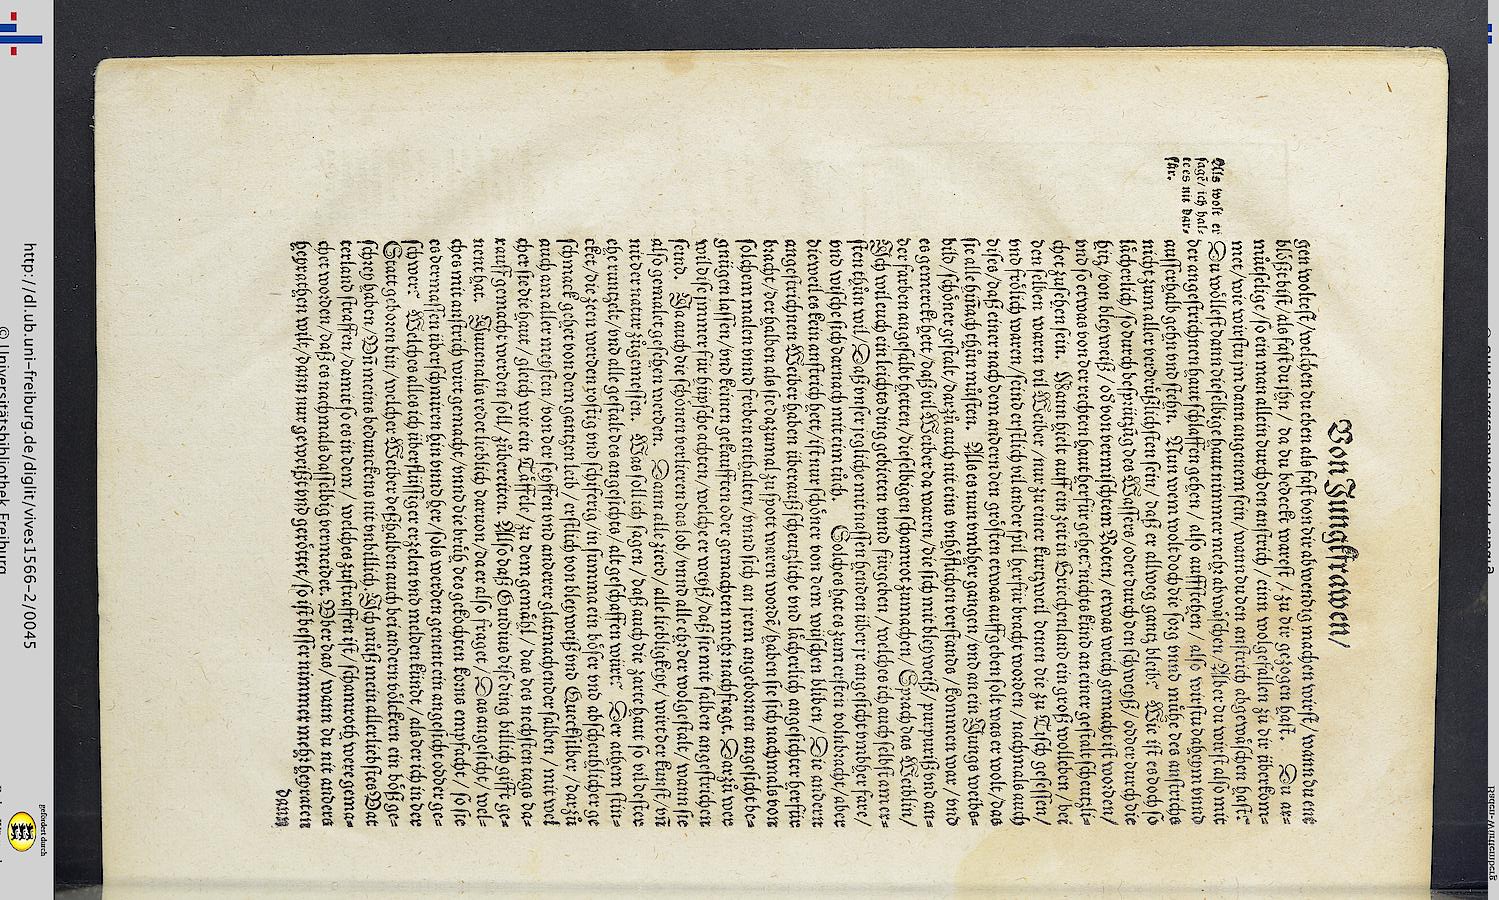 Von Jungkfrawen/
gen woltest/welchen du eben als fast von dir abwendig machen wirst/wann du ent
blößt bist/als fast du jhn/da du bedeckt warest/zu dir gezogen hast. Du ar-
mütselige/so ein man allein durch den anstrich/einn wolgefallen zu dir überkom-
met/wie wirstu jm dann angenem sein/wann du den anstrich abgewäschen hast?
Du wöllest dann dieselbge haut nimmer mehr abwüschen/Aber du wirst also mit
der angestrichnen haut schlaffen gehen/also auffstehen/also wirstu daheym vnnd
ausserhalb gehn vnd stehn. Nun wem wolt doch die sorg vnnd mühe des anstrichs
nicht zum aller verdrüßlichsten sein/daß er allweg gantz bleib? Wie ist es doch so
lächerlich/so durch besprützüg des Wassers/oder durch den schweyß/odder durch die
hitz/von bleyweiß/oď von vermischtem Roten/etwas weich gemacht ist worden/
vnd so etwas von der rechten haut herfür gehet: nichts kündt an einer gestalt scheutzli-
cher zusehen sein. Mann hielt auff ein zeit in Griechenland ein groß wolleben/bei
dem selben waren vil Weiber/nur zu einer kurtzweil denen die zu Tisch gesessen/
vnd frölich waren/seind erstlich vil ander spil herfür bracht worden/nachmals auch
dises/daß einer nach dem andern den grösten etwas auffgeben solt was er wolt/das
sie alle hinach thün müsten. Als es nun vmbher gangen/vnd an ein Jungs weibs-
bild/schöner gestalt/darzü auch mit eins vnhöflichen verstands/kommen war/vnd
es gemerckt hett/daß vil Weiber da waren/die sich mit bleyweiß/purpuriß vnd an-
der farben angesalbt hetten/dieselbigen schamrot zumachen/Sprach das Weiblin/
Ich wil euch ein leichts ding gebieten vnnd fürgeben/welches ich auch selbst am er-
sten thün wil/Daß vnser jegliche mit nassen henden über jr angesicht vmbher fare/
vnd wüsche sich darnach mit eim tüch. Solches hat es zum ersten volnbracht/aber
dieweil es kein anstrich hett/ist nur schöner von dem wüschen bliben/Die andern
angestrichnen Weiber haben überauß scheutzliche vnd lächerlich angesichter herfür
bracht/derhalben als sie dazumal zu spott waren wordē/haben sie sich nachmals von
solchem malen vnnd ferben enthalten/vnnd sich an jrem angebornen angesicht be-
gnügen lassen/vnd keinen gekaufften oder gemachten mehr nachfragt. Darzü wer
wil diß jmmer für hüpsche achten/welche er weiß/daß sie mit salben angestrichen
seind. Ja auch die schönen verlieren das lob/vnnd alle ehr der wolgestalt/wann sie
also gemalet gesehen werden. Dann alle zierd/alle liebligkeyt/wirt der kunst/vň
nit der natur zügemessen. Was soll ich sagen/daß auch die zarte haut so vil dester
ehr runtzelt/vnd alle gestalt des angesichts/alt geschaffen würt? Der athem stin-
cket/die zeen werden rostig vnd schiferig/in summa ein böser vnd abscheuhlicher ge
schmack gehet von dem gantzen leib/erstlich von bleyweiß vnd Quecksilber/darzü
auch am aller meysten/von der seyffen vnd anderer glatmachender salben/mit wel
cher sie die haut/gleich wie ein Täffele/zu dem gemähl/das des nechsten tags da-
rauff gemacht werden soll/zübereiten. Also daß Ouidius dise ding billich gifft ge-
nent hat. Juuenalis redet lieblich daruon/da er also fraget/Das angesicht/wel-
ches mit anstrich wirt gemacht/vnnd die brüh des gekochten korns empfacht/so sie
es dermassen überschmiren hin vnnd her/sols werden genent ein angesicht odder ge-
schwer? Welches alles ich überflüssiger erzelen vnd melden kündt/als der ich in der
Statt geboren bin/welcher Weiber deßhalben auch bei andern völckern ein böß ge-
schrey haben/Vñ meins bedunckens nit vnbillich. Ich muß mein allerliebstes Vat
terland straffen/damit so es in dem/welches zustraffen ist/schamroth were gema-
chet worden/daß es nachmals dasselbig vermeidet. Über das/wann du nit anders
heyrathen wilt/dann nur geweißt vnd gerötet/so ist besser nimmer mehr heyraten
dann
Als wolt er
sagē/ich hal-
te es nit dar-
für.
http://dl.ub.uni-freiburg.de/diglit/vives1566-2/0045
© Universitätsbibliothek Freiburg
gefördert durch